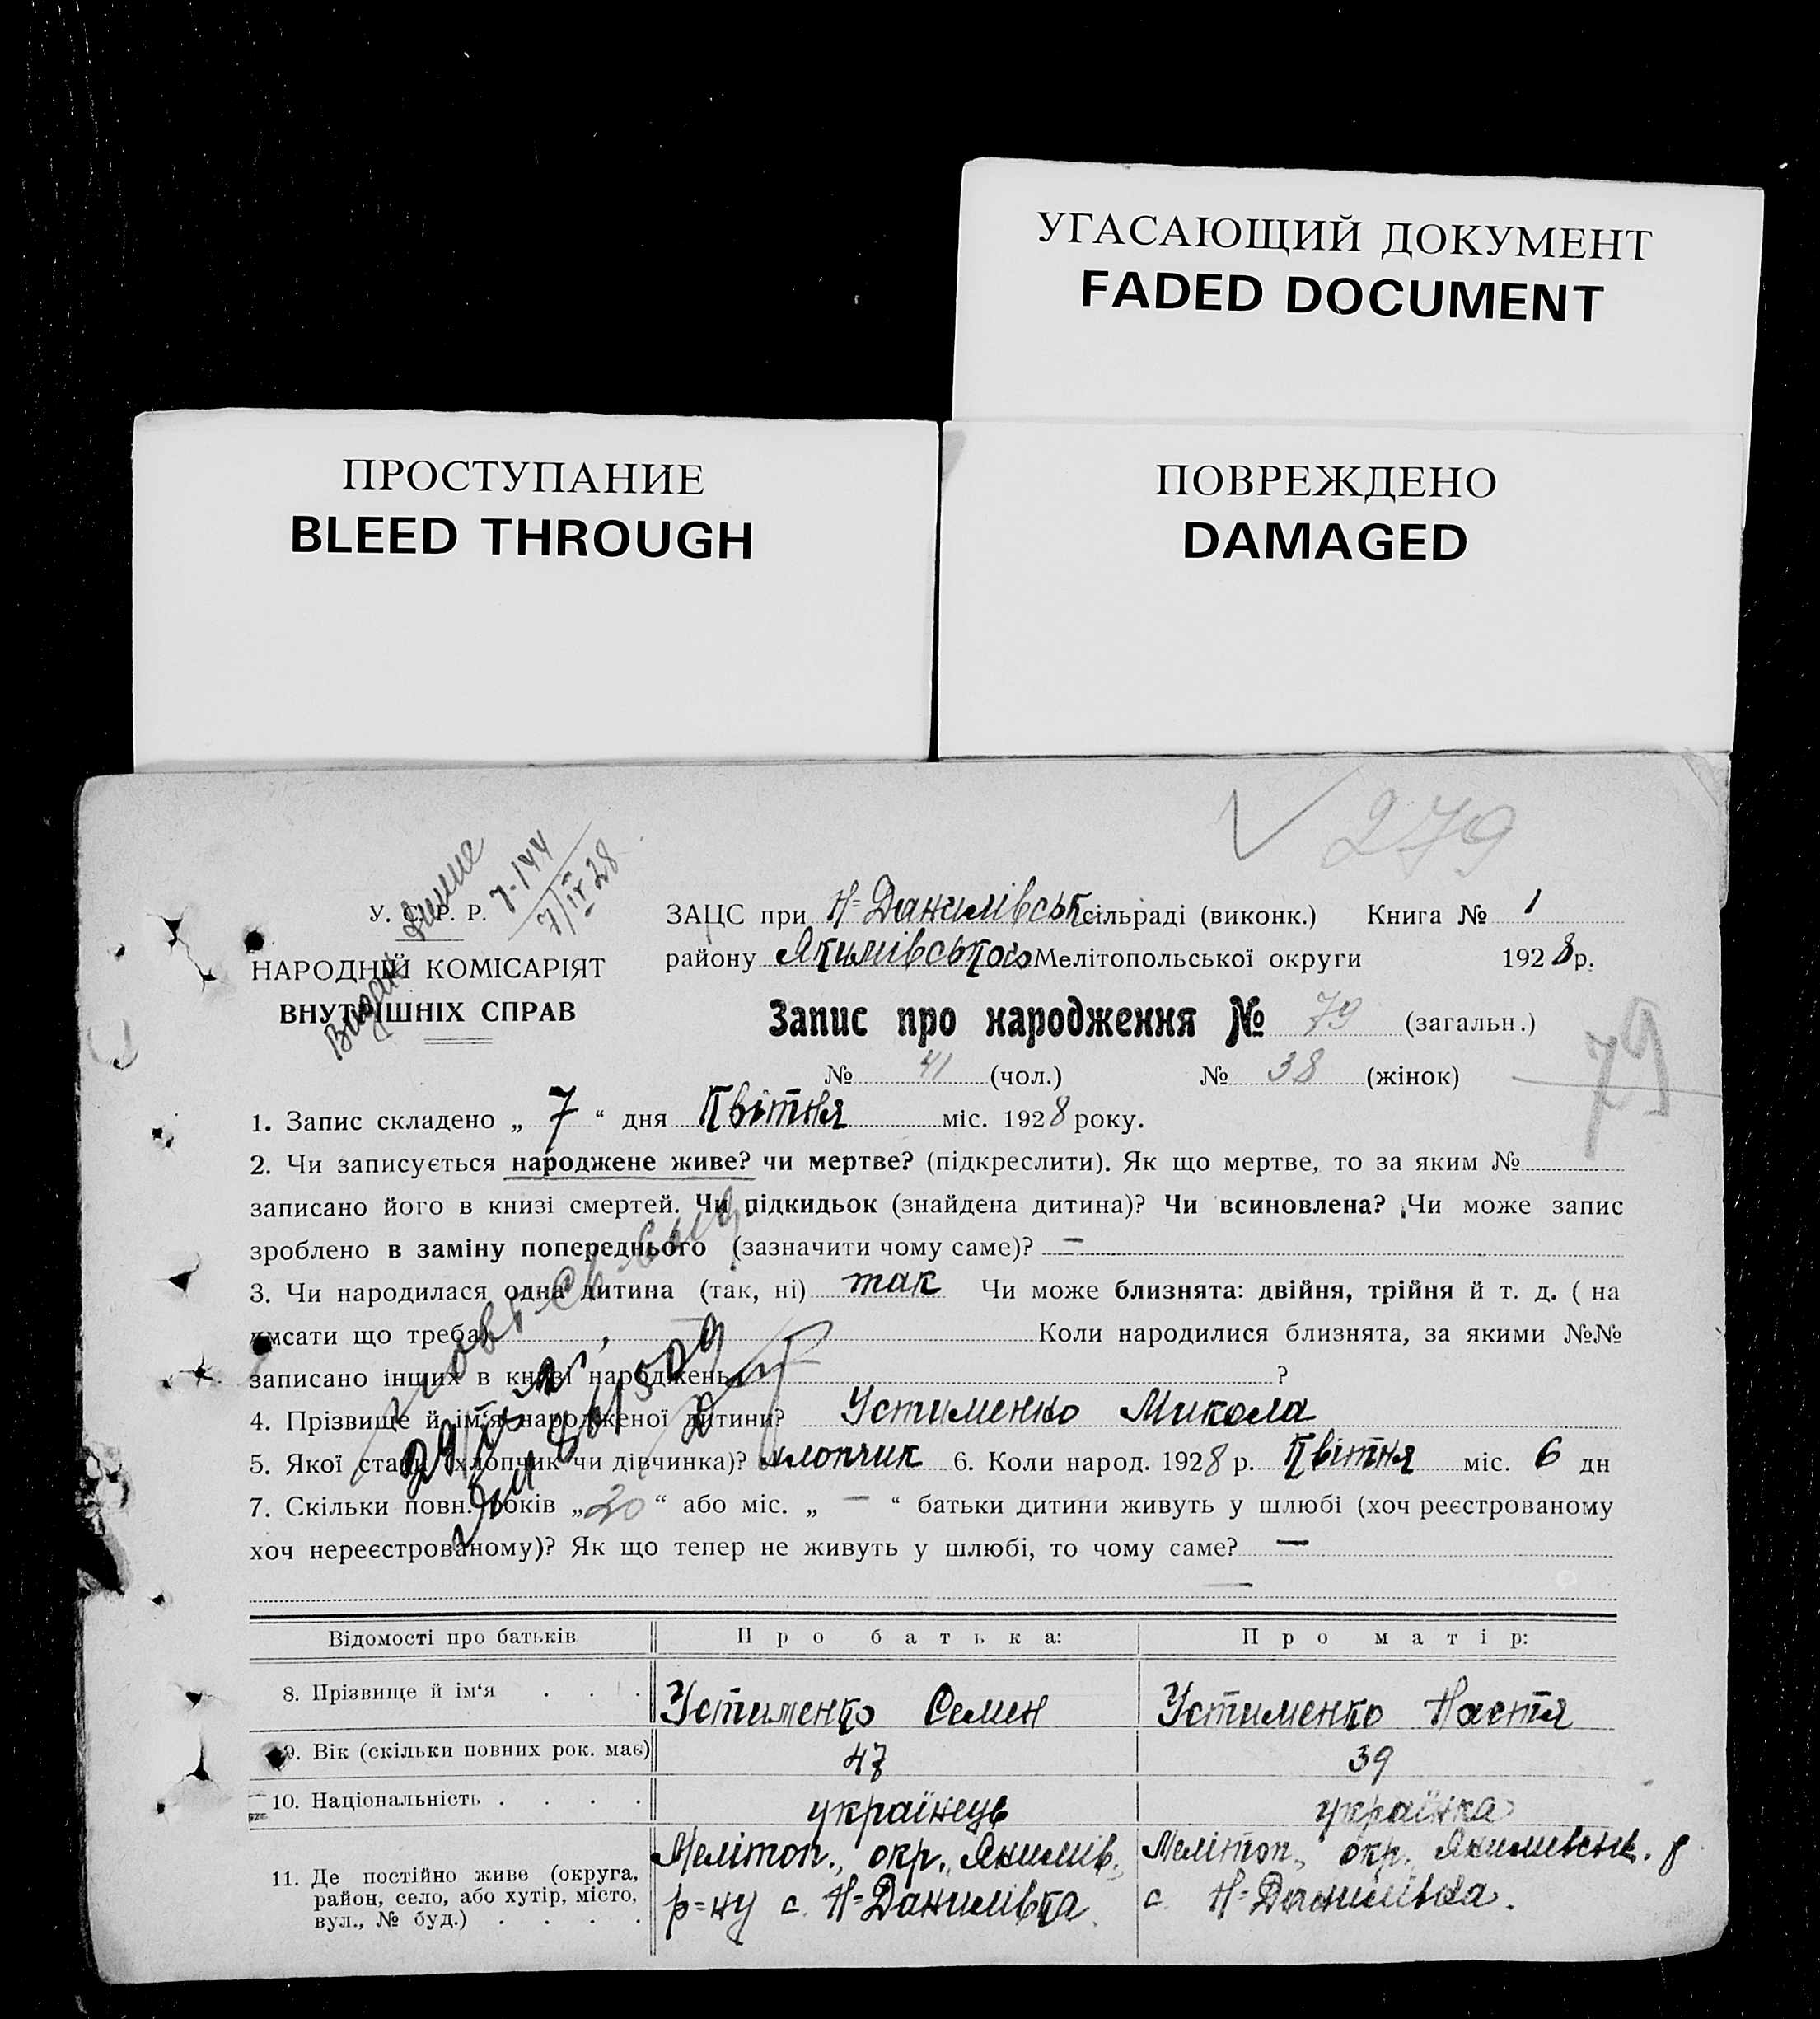 УГАСАЮЩИЙ ДОКУМЕНТ
FADED DOCUMENT
ПРОСТУПАНИЕ
BLEED THROUGH
ПОВРЕЖДЕНО
DAMAGED
279
У. С. Р. Р.
НАРОДНІЙ КОМІСАРІЯТ
ВНУТРІШНІХ СПРАВ
7-144
7/IV 28
ЗАЦС при Н=Данилівськ сільраді (виконк.) Книга № 1
району Якимівського Мелітопольської округи 1928 р.
Запис про народження № 79 (загальн.)
№ 41 (чол.) № 38 (жінок)
79
1. Запис складено „ 7 “ дня Квітня міс. 1928 року.
2. Чи записується народжене живе? чи мертве? (підкреслити). Як що мертве, то за яким №
записано його в книзі смертей. Чи підкидьок (знайдена дитина)? Чи всиновлена? Чи може запис
зроблено в заміну попереднього (зазначити чому саме)? —
3. Чи народилася одна дитина (так, ні) так Чи може близнята: двійня, трійня й т. д. ( на
писати що треба) Коли народилися близнята, за якими №№
записано інших в книзі народжень ?
4. Прізвище й ім'я народженої дитини? Устименко Микола
5. Якої стати (хлопчик чи дівчинка)? хлопчик 6. Коли народ. 1928 р. Квітня міс. 6 дн
7. Скільки повн. років „ 20 “ або міс. „ — “ батьки дитини живуть у шлюбі (хоч реєстрованому
хоч нереєстрованому)? Як що тепер не живуть у шлюбі, то чому саме? —
Відомості про батьків Про батька: Про матір:
8. Прізвище й ім'я . . . Устименко Семен Устименко Настя
9. Вік (скільки повних рок. має) 47 39
10. Національність . . . . українець українка
11. Де постійно живе (округа,
район, село, або хутір, місто,
вул., № буд.) . . . .
Меліпоп., окр., Якимів.
р=ну с. Н=Данилівка
Мелітоп., окр. Якимівськ. р
с. Н=Данилівка.